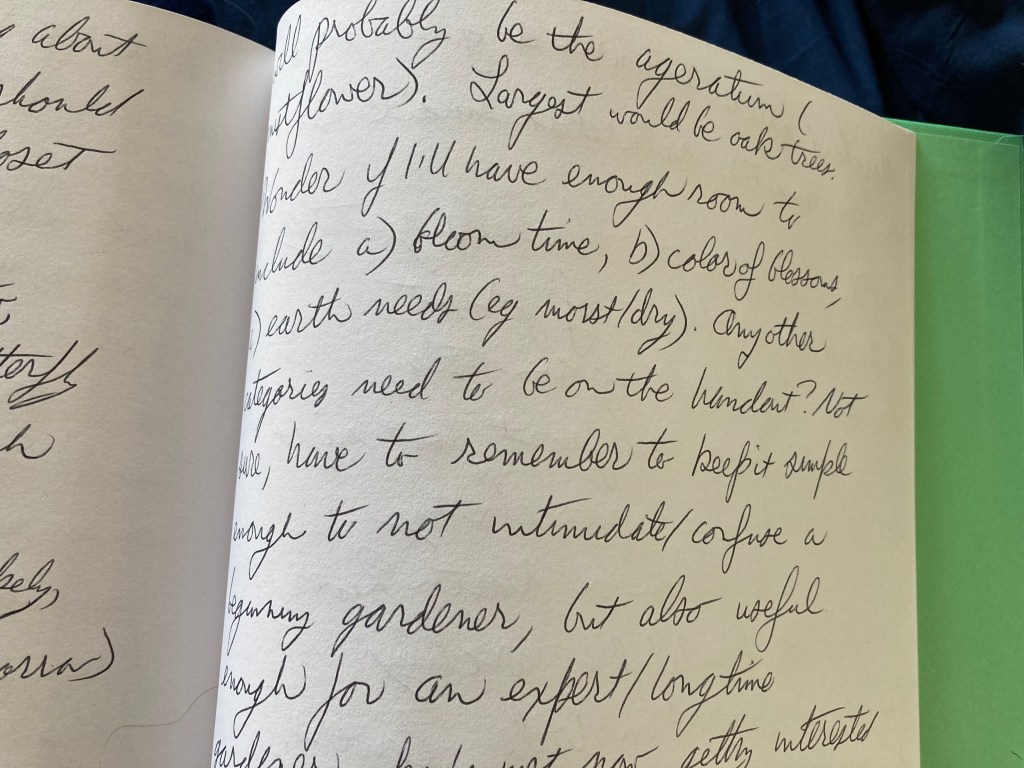 about
should
will probably be the ageratum (
mistflower). Largest would be oak trees.
Wonder if I'll have enough room to
include a) bloom time, b) color of blossoms,
c) earth needs (eg moist/dry). Any other
categories need to be on the handout? Not
sure, have to remember to keep it simple
enough to not intimidate/confuse a
beginning gardener, but also useful
enough for an expert/longtime
gardener
just now getting interested